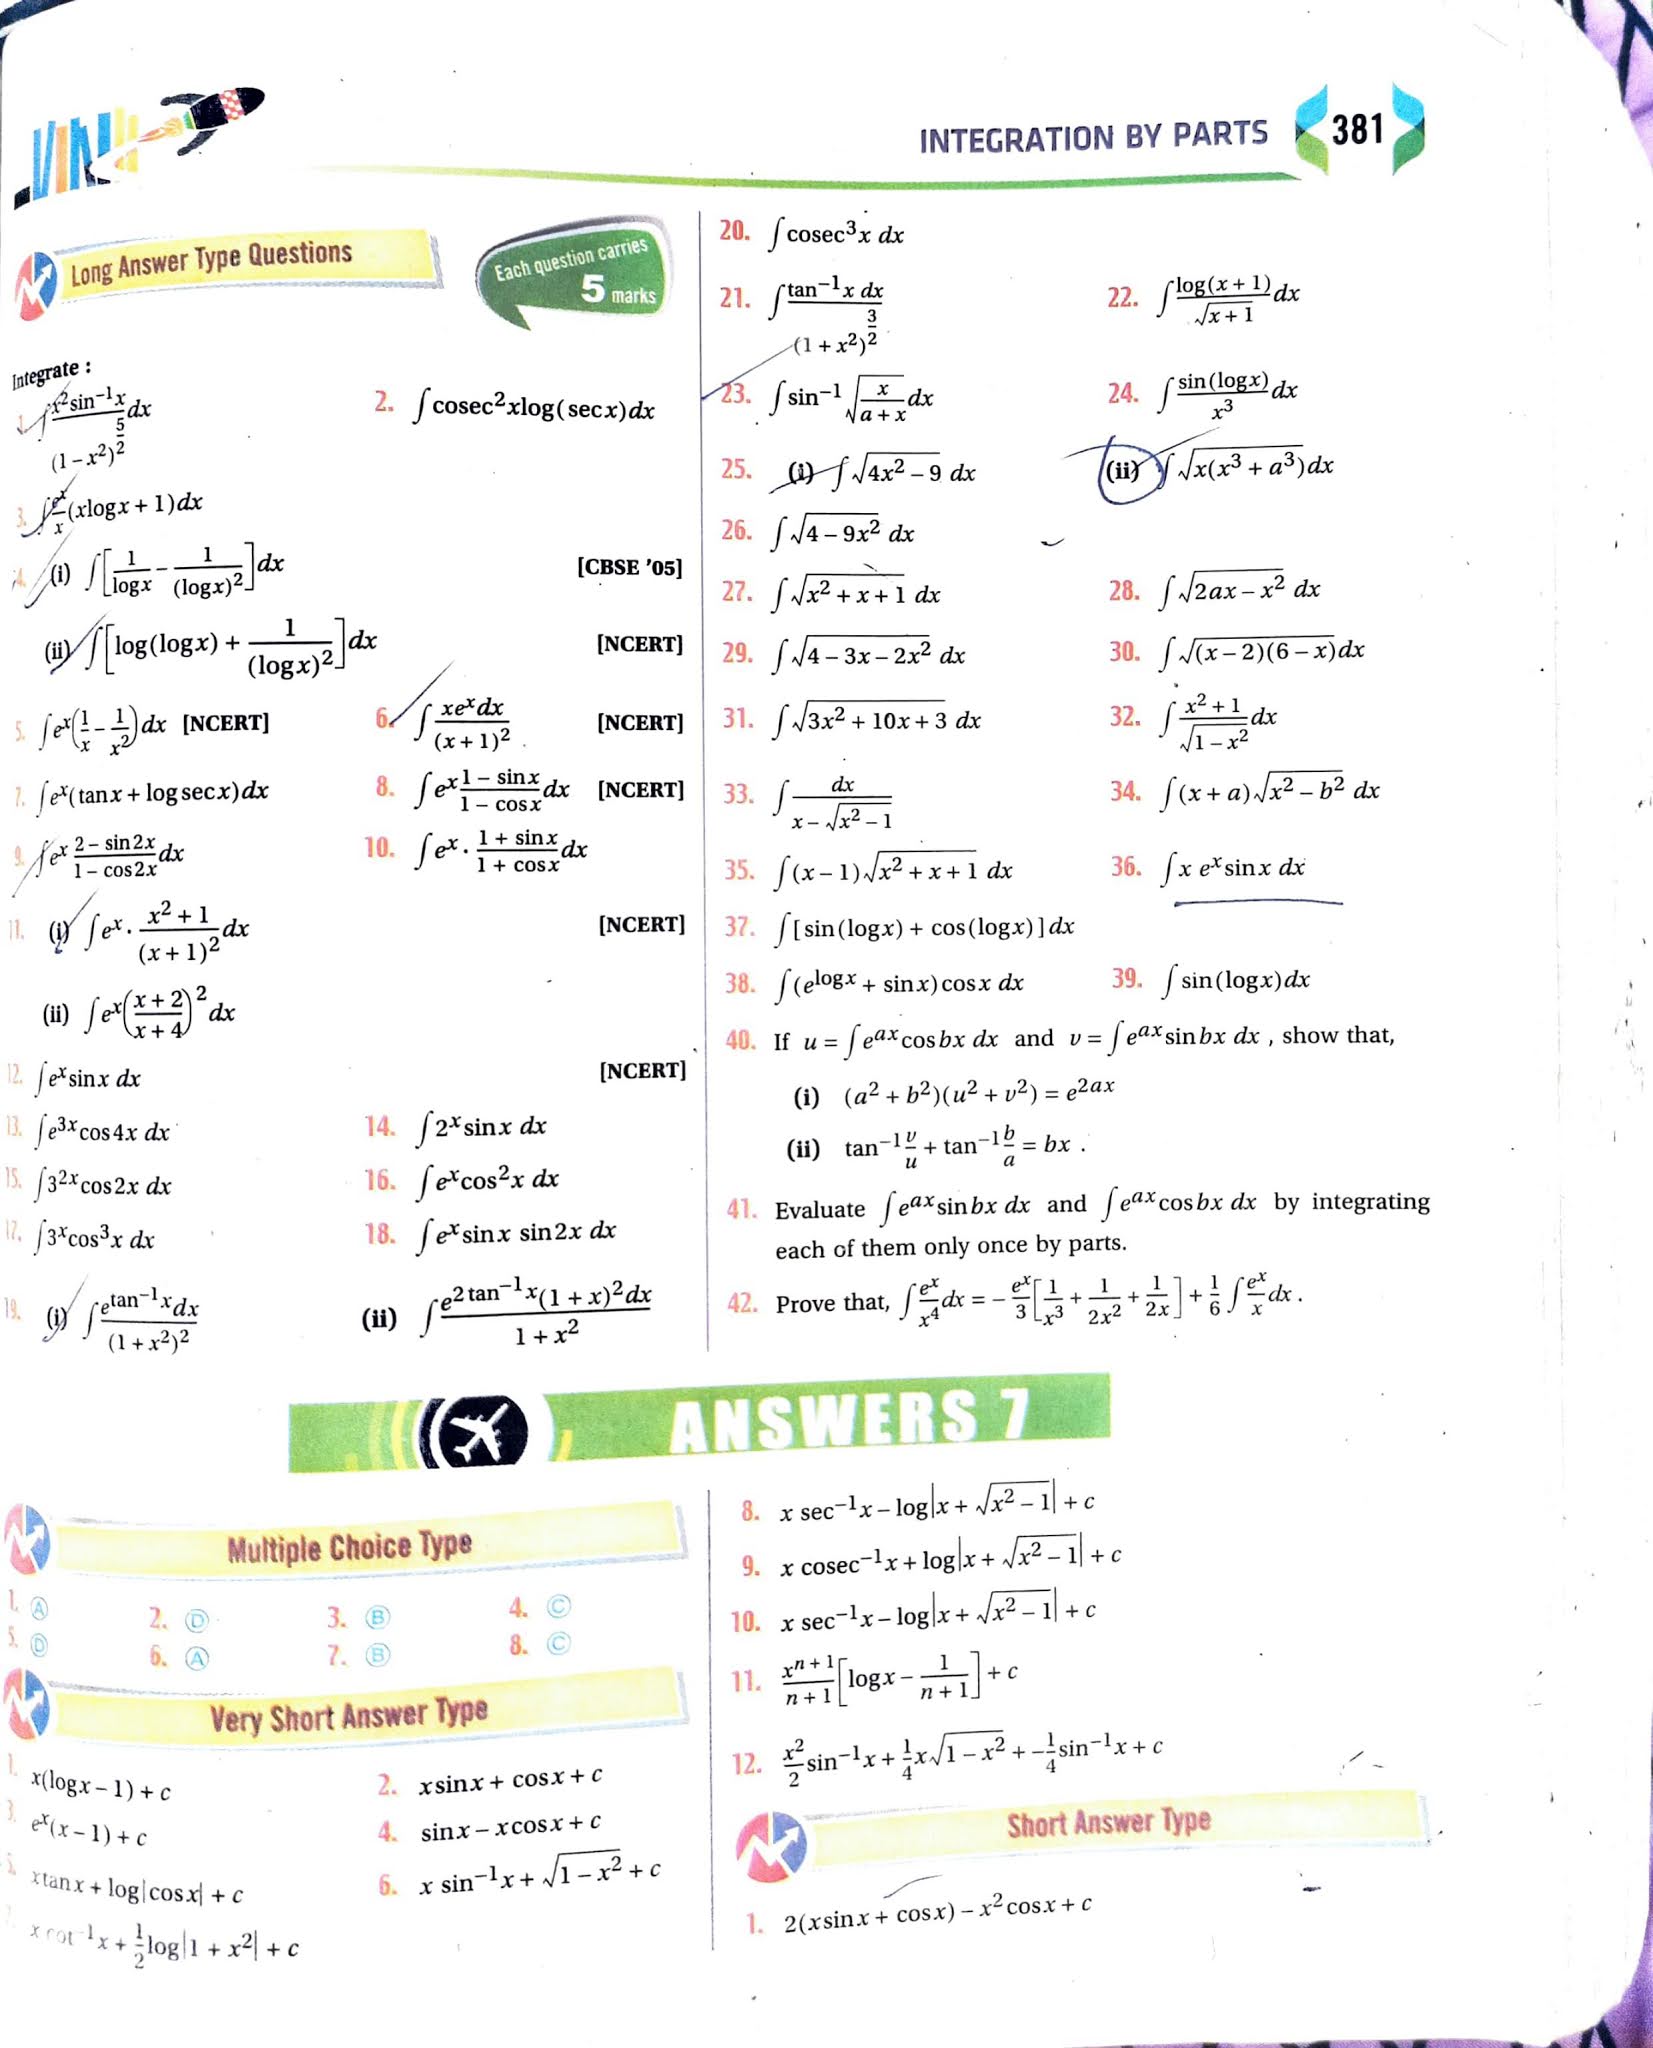 INTEGRATION BY PARTS 381
Long Answer Type Questions
Each question carries
5 marks
Integrate :
1. ∫ x²sin⁻¹x / (1 – x²)^(5/2) dx
2. ∫cosec²xlog(secx)dx
3. ∫ eˣ/x (xlogx + 1)dx
4. (i) ∫[1/logx – 1/(logx)²]dx [CBSE '05]
(ii) ∫[log(logx) + 1/(logx)²]dx [NCERT]
5. ∫eˣ(1/x – 1/x²)dx [NCERT]
6. ∫ xeˣdx/(x + 1)² [NCERT]
7. ∫eˣ(tanx + logsecx)dx
8. ∫eˣ (1 – sinx)/(1 – cosx) dx [NCERT]
9. ∫eˣ (2 – sin2x)/(1 – cos2x) dx
10. ∫eˣ · (1 + sinx)/(1 + cosx) dx
11. (i) ∫eˣ · (x² + 1)/(x + 1)² dx [NCERT]
(ii) ∫eˣ((x + 2)/(x + 4))² dx
12. ∫eˣsinx dx [NCERT]
13. ∫e³ˣcos4x dx
14. ∫2ˣsinx dx
15. ∫3²ˣcos2x dx
16. ∫eˣcos²x dx
17. ∫3ˣcos³x dx
18. ∫eˣsinx sin2x dx
19. (i) ∫ e^(tan⁻¹x)dx/(1 + x²)²
(ii) ∫ e^(2 tan⁻¹x)(1 + x)²dx/(1 + x²)
20. ∫cosec³x dx
21. ∫ tan⁻¹x dx/(1 + x²)^(3/2)
22. ∫ log(x + 1)/√(x + 1) dx
23. ∫sin⁻¹√(x/(a + x)) dx
24. ∫ sin(logx)/x³ dx
25. (i) ∫√(4x² – 9) dx
(ii) ∫√(x(x³ + a³))dx
26. ∫√(4 – 9x²) dx
27. ∫√(x² + x + 1) dx
28. ∫√(2ax – x²) dx
29. ∫√(4 – 3x – 2x²) dx
30. ∫√((x – 2)(6 – x))dx
31. ∫√(3x² + 10x + 3) dx
32. ∫ (x² + 1)/√(1 – x²) dx
33. ∫ dx/(x – √(x² – 1))
34. ∫(x + a)√(x² – b²) dx
35. ∫(x – 1)√(x² + x + 1) dx
36. ∫x eˣsinx dx
37. ∫[sin(logx) + cos(logx)]dx
38. ∫(e^(logx) + sinx)cosx dx
39. ∫sin(logx)dx
40. If u = ∫e^(ax)cosbx dx and v = ∫e^(ax)sinbx dx , show that,
(i) (a² + b²)(u² + v²) = e^(2ax)
(ii) tan⁻¹ v/u + tan⁻¹ b/a = bx .
41. Evaluate ∫e^(ax)sinbx dx and ∫e^(ax)cosbx dx by integrating
each of them only once by parts.
42. Prove that, ∫ eˣ/x⁴ dx = – eˣ/3 [1/x³ + 1/2x² + 1/2x] + 1/6 ∫ eˣ/x dx .
ANSWERS 7
Multiple Choice Type
1. A 2. D 3. B 4. C
5. D 6. A 7. B 8. C
Very Short Answer Type
1. x(logx – 1) + c
2. xsinx + cosx + c
3. eˣ(x – 1) + c
4. sinx – xcosx + c
5. xtanx + log|cosx| + c
6. x sin⁻¹x + √(1 – x²) + c
7. x cot⁻¹x + ½log|1 + x²| + c
8. x sec⁻¹x – log|x + √(x² – 1)| + c
9. x cosec⁻¹x + log|x + √(x² – 1)| + c
10. x sec⁻¹x – log|x + √(x² – 1)| + c
11. xⁿ⁺¹/(n + 1) [logx – 1/(n + 1)] + c
12. x²/2 sin⁻¹x + ¼x√(1 – x²) + –¼sin⁻¹x + c
Short Answer Type
1. 2(xsinx + cosx) – x²cosx + c